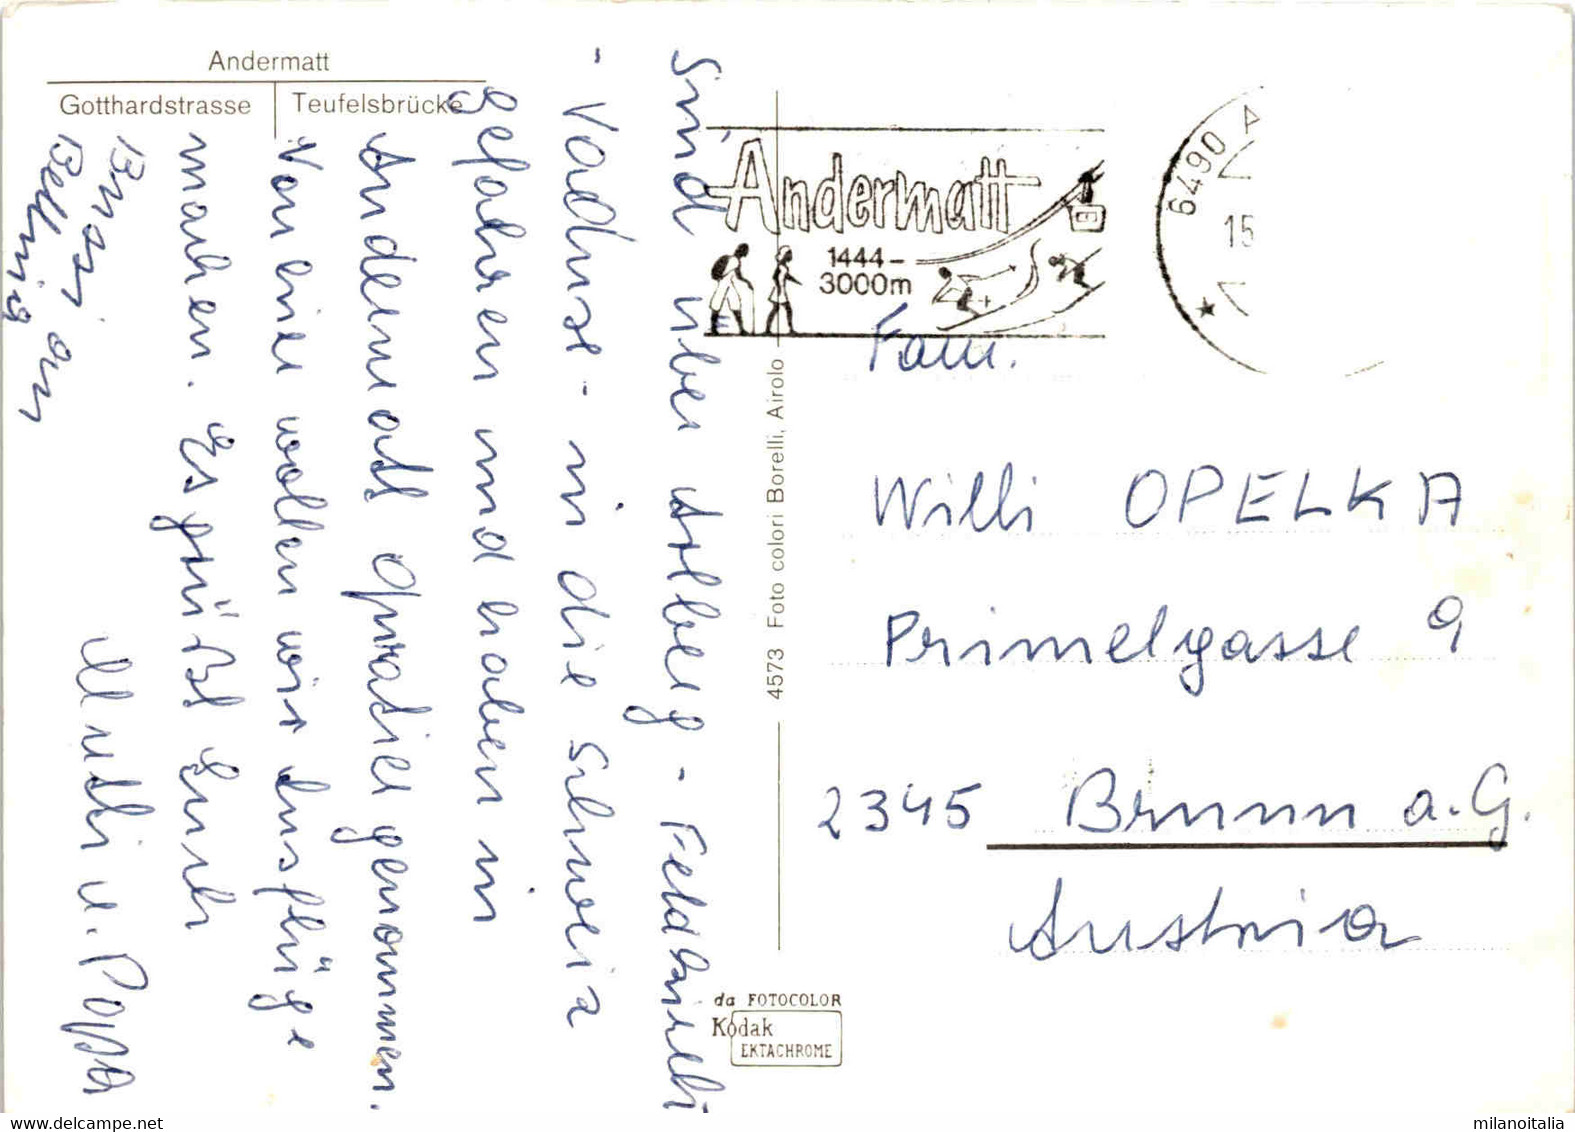 Andermatt
Gotthardstrasse Teufelsbrücke
Sind über Arlberg - Feldkirch
- Vaduz - in die Schweiz
gefahren und haben in
Andermatt Quartier genommen.
Von hier wollen wir Ausflüge
machen. Es grüßt Euch
Mutti u. Pappa
Bussi an
4573 Foto colori Borelli, Airolo
Andermatt
1444 –
3000m
6490 A
15
Fam.
Willi OPELKA
Primelgasse 9
2345 Brunn a. G.
Austria
da FOTOCOLOR
Kodak
EKTACHROME
milanoitalia
delcampe.net